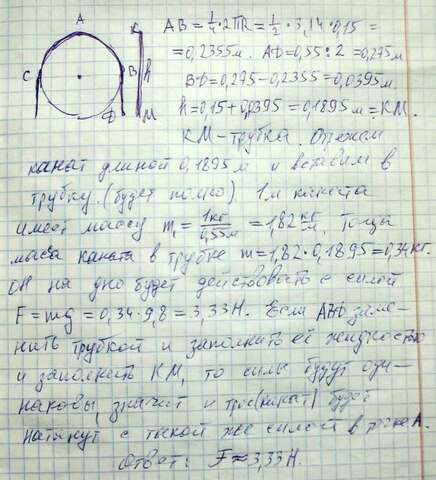 A
K
C
B
h
D
M
AB = 1/4 · 2πR = 1/2 · 3,14 · 0,15 =
= 0,2355м. AD = 0,55 : 2 = 0,275м
BD = 0,275 - 0,2355 = 0,0395м.
h = 0,15 + 0,0395 = 0,1895м = KM.
KM - трубка. Отрежем
канат длиной 0,1895 м и вставим в
трубку. (будет полно). 1м каната
имеет массу m₁ = 1кг/0,55м = 1,82 кг/м. Тогда
маса каната в трубке m = 1,82 · 0,1895 = 0,34кг.
Он на дно будет действовать с силой
F = mg = 0,34 · 9,8 = 3,33Н. Если ABD заме-
нить трубкой и заполнить её жидкостью
и заполнить KM, то силы будут оди-
наковы, значит и трос(канат) будет
натянут с такой же силой в точке А.
Ответ: F ≈ 3,33Н.